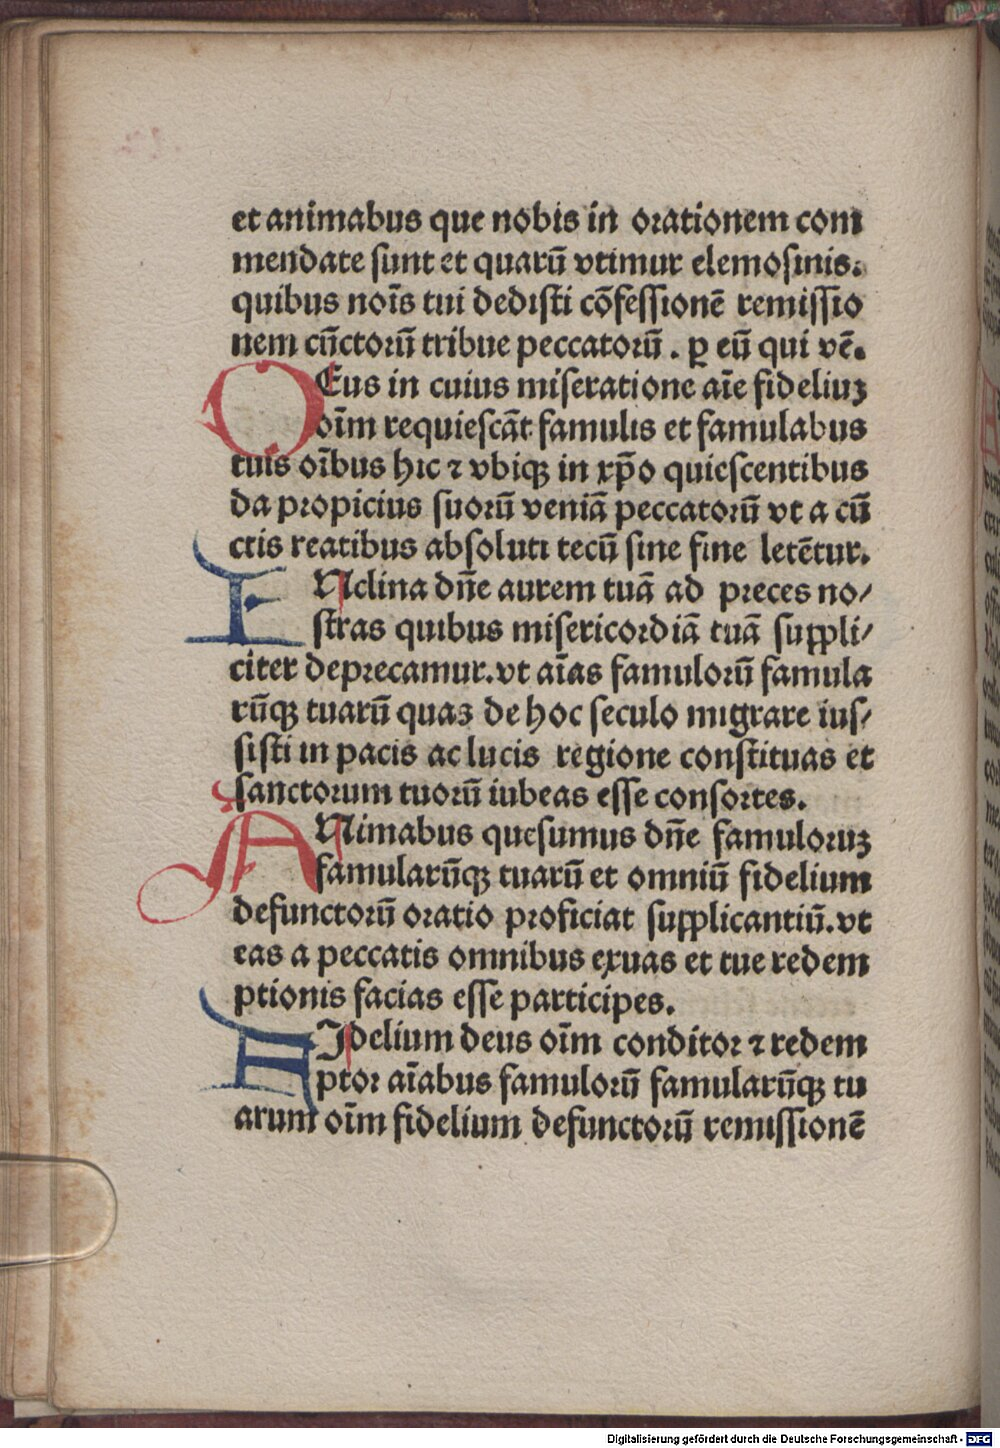 et animabus que nobis in orationem com
mendate sunt et quarū vtimur elemosinis.
quibus noīs tui dedisti cōfessionē remissio
nem cūctorū tribue peccatorū . ꝑ eū qui vē.
DEus in cuius miseratione aīe fideliuꝫ
oīm requiescāt famulis et famulabus
tuis oībus hic ⁊ vbiqꝫ in xp̄o quiescentibus
da propicius suorū veniā peccatorū vt a cū
ctis reatibus absoluti tecū sine fine letētur.
INclina dn̄e aurem tuā ad preces no/
stras quibus misericordiā tuā suppli/
citer deprecamur.vt aīas famulorū famula
rūqꝫ tuarū quas de hoc seculo migrare ius/
sisti in pacis ac lucis regione constituas et
sanctorum tuorū iubeas esse consortes.
ANimabus quesumus dn̄e famuloruꝫ
famularūqꝫ tuarū et omniū fidelium
defunctorū oratio proficiat supplicantiū.vt
eas a peccatis omnibus exuas et tue redem
ptionis facias esse participes.
FIdelium deus oīm conditor ⁊ redem
ptor aīabus famulorū famularūqꝫ tu
arum oīm fidelium defunctorū remissionē
Digitalisierung gefördert durch die Deutsche Forschungsgemeinschaft - DFG